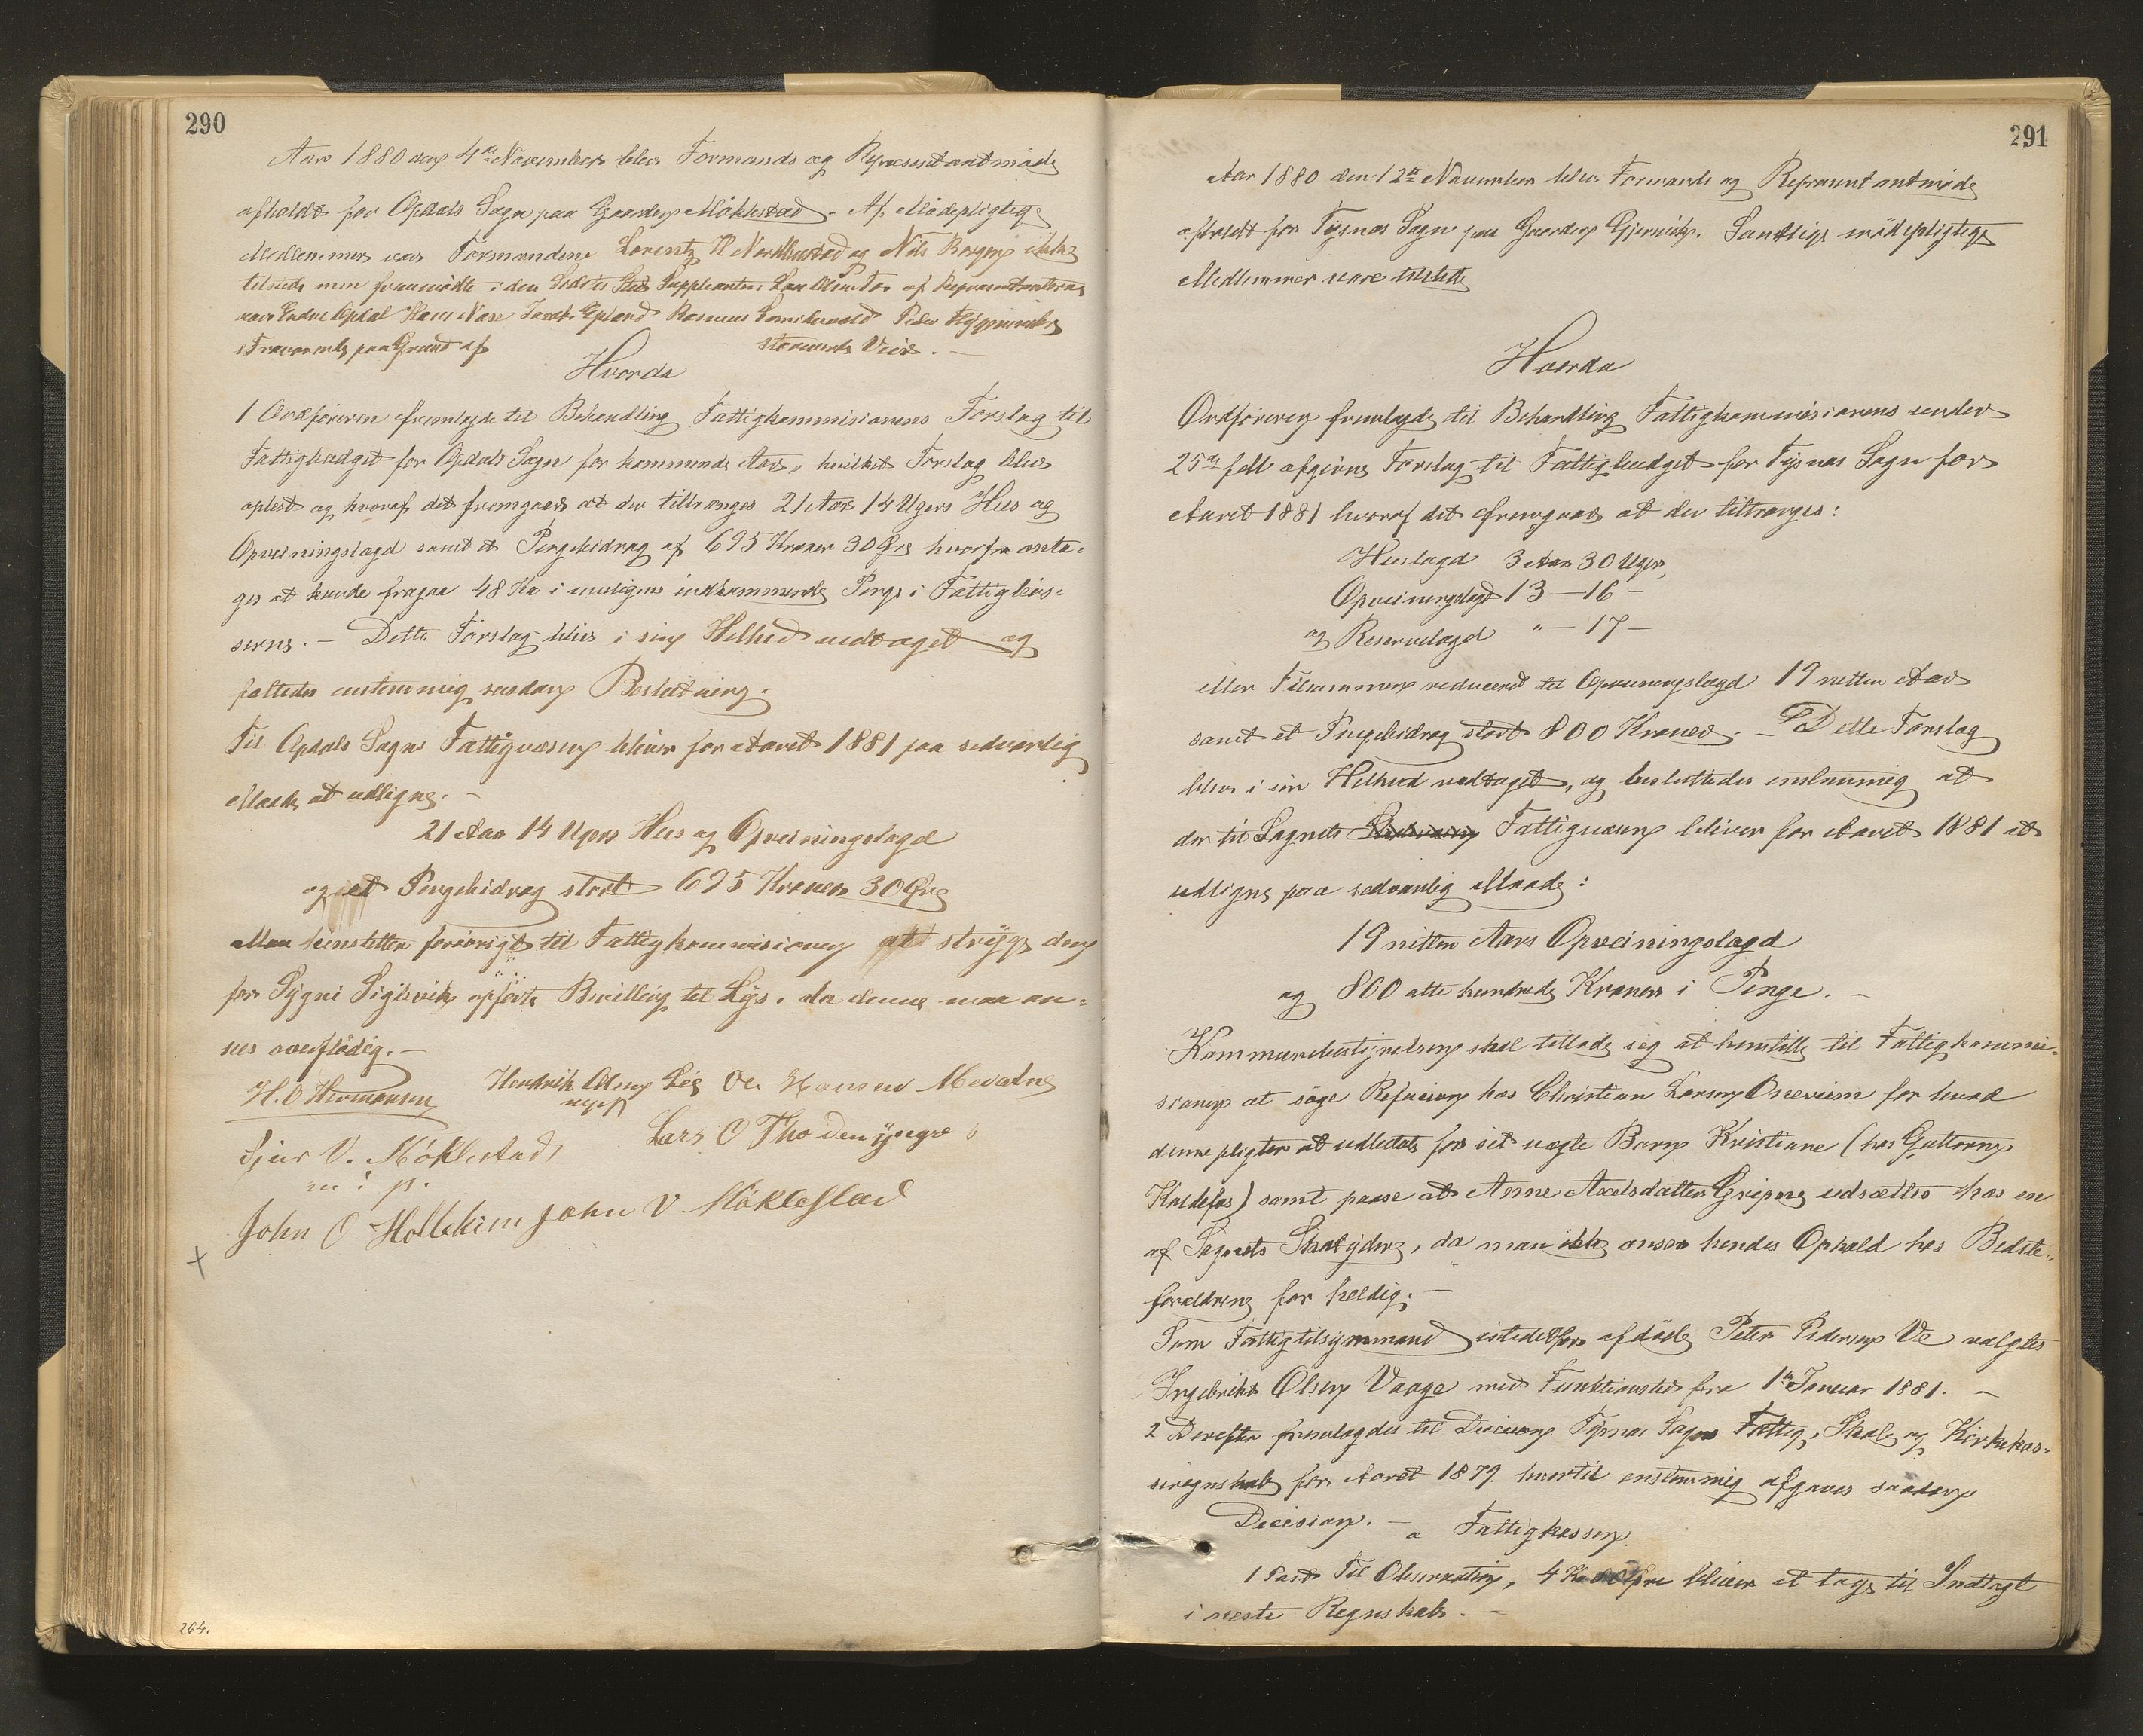 290
Aar 1880 den 4de November blev Formands og Repræsentantmøde
afholdt for Opdals Sogn paa Gaarden Møklestad. Af Mødepligtige
Medlemmer var Formændene Lorentz Nordhustad og Nils Borgen ikke
tilstede men fremmødte i den Sidstes Sted Suppleanten Lars Olsen Tho af Repræsentanterne
var Endre Opdal Hans Jacob Rasmus Peder
Fraværende paa Grund af stormende Veir. —
Hvorda
1 Ordføreren fremlagde til Behandling Fattigkommisionens Forslag til
Fattigbudget for Opdals Sogn for kommende Aar, hvilket Forslag blev
oplest og hvoraf det fremgaar at der tiltrænges 21 Aar 14 Ugers Hus og
Opveiningslægd samt et Pengebidrag af 695 Kroner 30 Øre hvorfra anta-
ges at kunde fragaa 48 Kr i muligens indkommende Penge i Fattigbøs-
serne. — Dette Forslag blev i sin Helhed vedtaget og
fattedes enstemmig saadan Beslutning.
Til Opdals Sogns Fattigvæsen bliver for Aaret 1881 paa sedvanlig
Maade at udligne. —
21 Aar 14 Ugers Hus og Opveiningslægd
og et Pengebidrag stort 695 Kroner 30 Øre
Man henstiller forøvrigt til Fattigkommisionen at stryge den
for Sygni Siglevik opførte Bevilling til Lys, da denne maa an-
sees overflødig. —
H. O Hermansen Hendrik Olsen Leg Ole Hansen Mevatne
Sjur V. Møklestad Lars O Tho den yngre
m. i p.
John O Hollekim John V Møklestad
264.
291
Aar 1880 den 12te November blev Formands og Repræsentantmøde
afholdt for Tysnes Sogn paa Gaarden Gjernvik. Samtlige mødepligtige
Medlemmer vare tilstede
Hvorda
Ordføreren fremlagde til Behandling Fattigkommissionens under
25de f. M. afgivne Forslag til Fattigbudget for Tysnes Sogn for
Aaret 1881 hvoraf det fremgaar at der tiltrænges:
Huslægd 3 Aar 30 Uger,
Opveiningslægd 13 — 16 —
og Reservelægd " — 17 —
eller Tilsammen reduceret til Opveiningslægd 19 nitten Aar
samt et Pengebidrag stort 800 Kroner. — Dette Forslag
blev i sin Helhed vedtaget, og besluttedes enstemmig at
der til Sognets Fattigvæsen bliver for Aaret 1881 at
udligne paa sedvanlig Maade:
19 nitten Aars Opveiningslægd
og 800 atte hundrede Kroner i Penge. —
Kommunebestyrelsen skal tillade sig at henstille til Fattigkommi-
sionen at søge Refusion hos Christian Larsen Onarheim for hvad
denne pligter at udbetale for sit uægte Barn Kristiane (hos Guttorm
Kaldefos) samt paase at Anne Axelsdatter Gripne udsættes hos en
af Sognets Skatydere, da man ikke anser hendes Ophold hos Bedste-
foreldrene for heldig. —
Som Fattigtilsynsmand istedetfor afdøde Peter Pedersen Ve valgtes
Ingebrikt Olsen Vaage med Funktionstid fra 1ste Januar 1881. —
2 Derefter fremlagdes til Decision Tysnes Sogns Fattig, Skole og Kirkekas-
seregnskab for Aaret 1879. hvortil enstemmig afgaves saadan
Decision. — a Fattigkassen.
1 Post Til Observation, 4 Kr Øre bliver at tage til Indtægt
i neste Regnskab. —